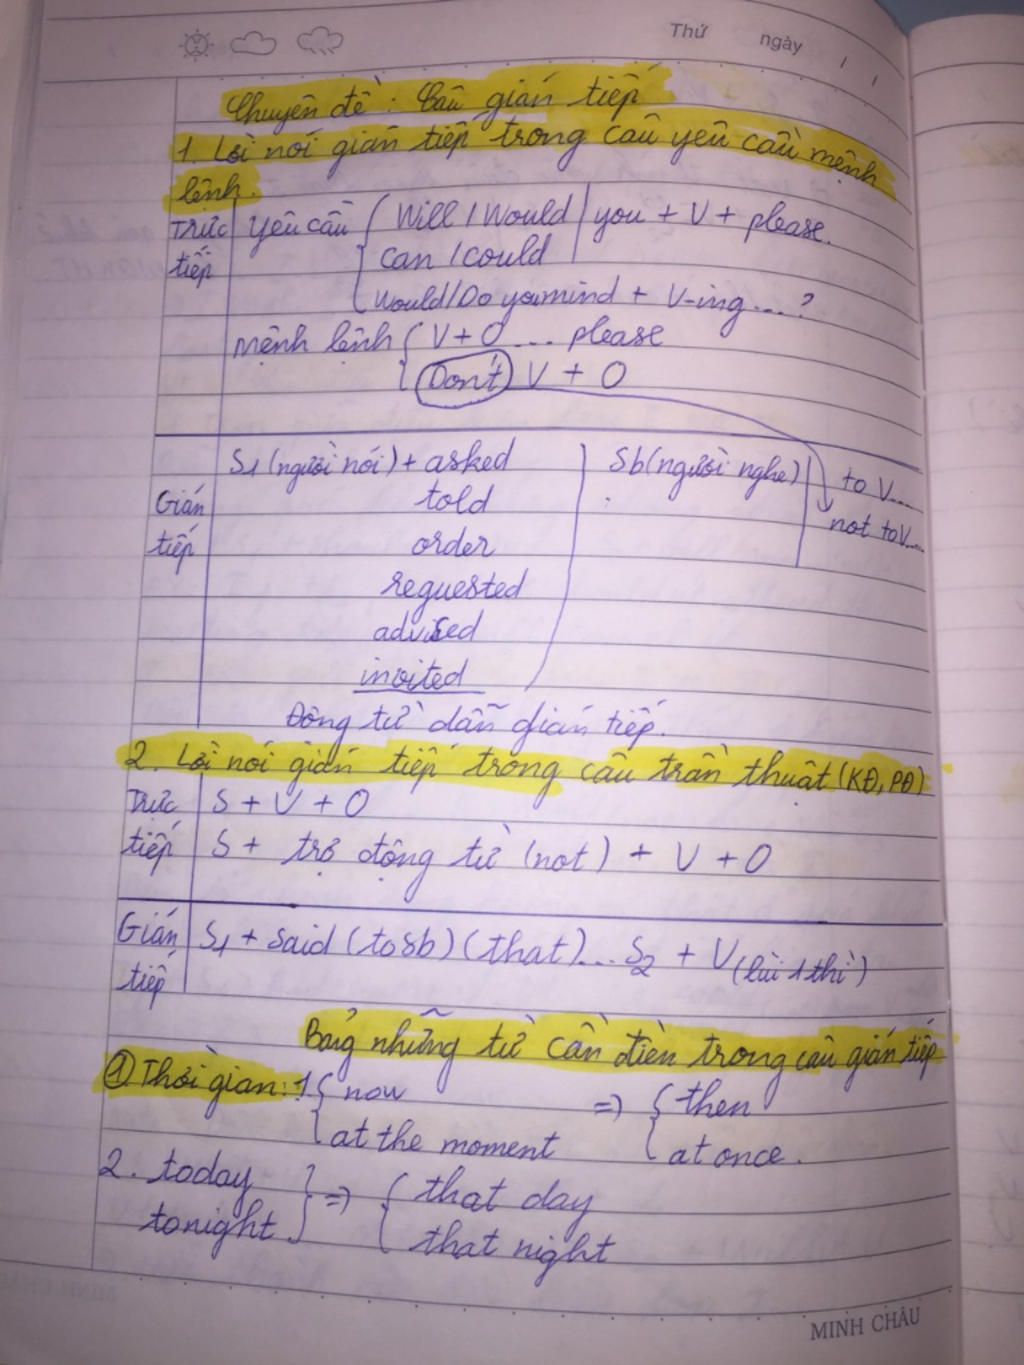 Thứ ngày / /
Chuyên đề: Câu gián tiếp
1. Lời nói gián tiếp trong câu yêu cầu mệnh
lệnh.
Trực tiếp
Yêu cầu { Will / Would | you + V + please.
can / could
Would / Do you mind + V-ing ... ?
Mệnh lệnh { V + O ... please
Don't V + O
Gián tiếp
S1 (người nói) + asked | Sb (người nghe) | to V....
told
not to V....
order
requested
advised
invited
Động từ dẫn gián tiếp.
2. Lời nói gián tiếp trong câu trần thuật (KĐ, PĐ)
Trực tiếp
S + V + O
S + trợ động từ (not) + V + O
Gián tiếp
S1 + said (to sb) (that)... S2 + V (lùi 1 thì)
Bảg những từ cần điền trong câu gián tiếp
① Thời gian: 1 { now => { then
at the moment at once.
2. today } => { that day
tonight that night
MINH CHÂU